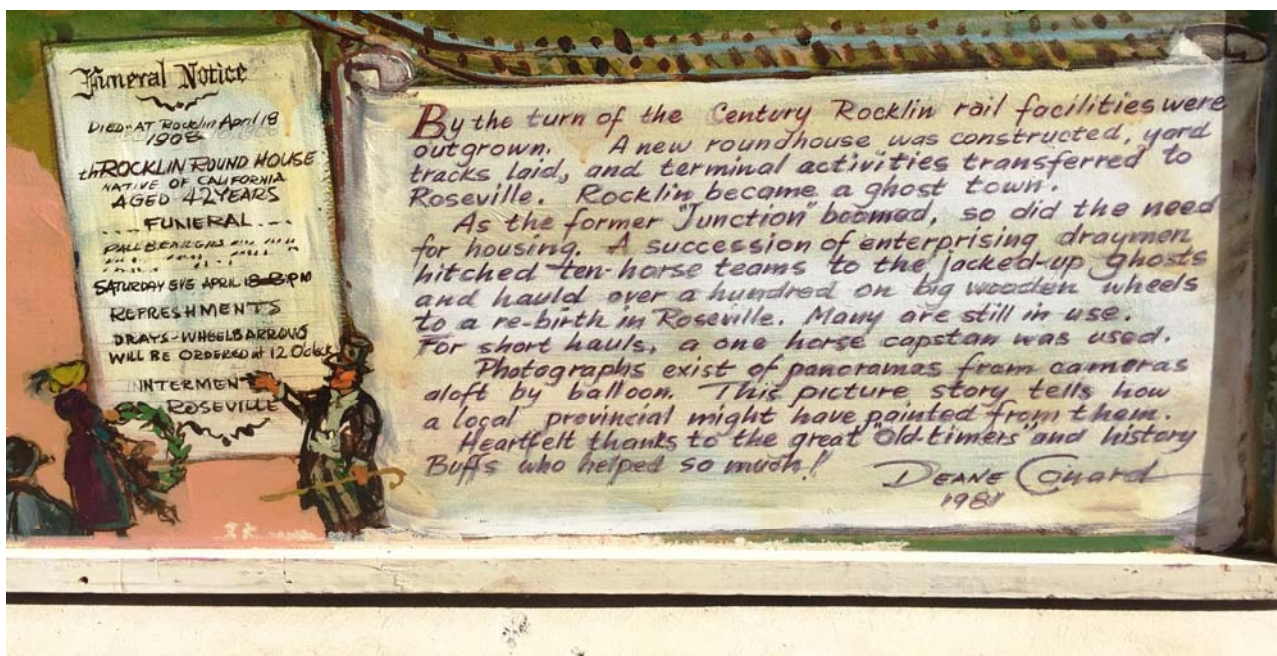 Funeral Notice
DIED-AT Rocklin April 18
1908
th ROCKLIN ROUND HOUSE
NATIVE OF CALIFORNIA
AGED 42 YEARS
FUNERAL
SATURDAY EVE APRIL 18-8PM
REFRESHMENTS
DRAYS-WHEELBARROWS
WILL BE ORDERED at 12 Oclock
INTERMENT
ROSEVILLE
By the turn of the Century Rocklin rail facilities were
outgrown. A new roundhouse was constructed, yard
tracks laid, and terminal activities transferred to
Roseville. Rocklin became a ghost town.
As the former "Junction" boomed, so did the need
for housing. A succession of enterprising draymen
hitched ten-horse teams to the jacked-up ghosts
and hauld over a hundred on big wooden wheels
to a re-birth in Roseville. Many are still in use.
For short hauls, a one horse capstan was used.
Photographs exist of panoramas from cameras
aloft by balloon. This picture story tells how
a local provincial might have painted from them.
Heartfelt thanks to the great "Old-timers" and history
Buffs who helped so much!
DEANE Conard
1981